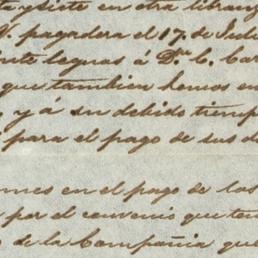 te y siete en otra libran
V. pagadera el 17. de Juli
inte leguas á Dn. C. Car
que tambien hemos en
y á su debido tiemp
para el pago de sus d
mes en el pago de los
por el convenio que ten
de la Compañia que